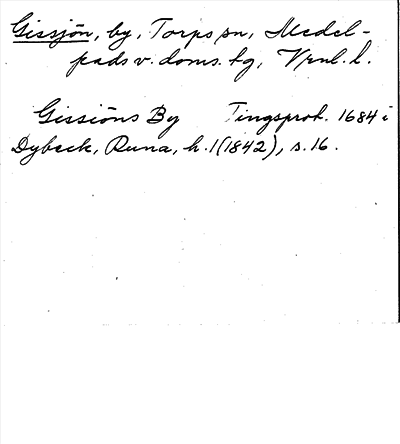 Gissjön, by, Torps sn, Medel-
pads v. doms. tg, Vrnl. l.
Gissiöns By Tingsprot. 1684 i
Dybeck, Runa, h. 1 (1842), s. 16.